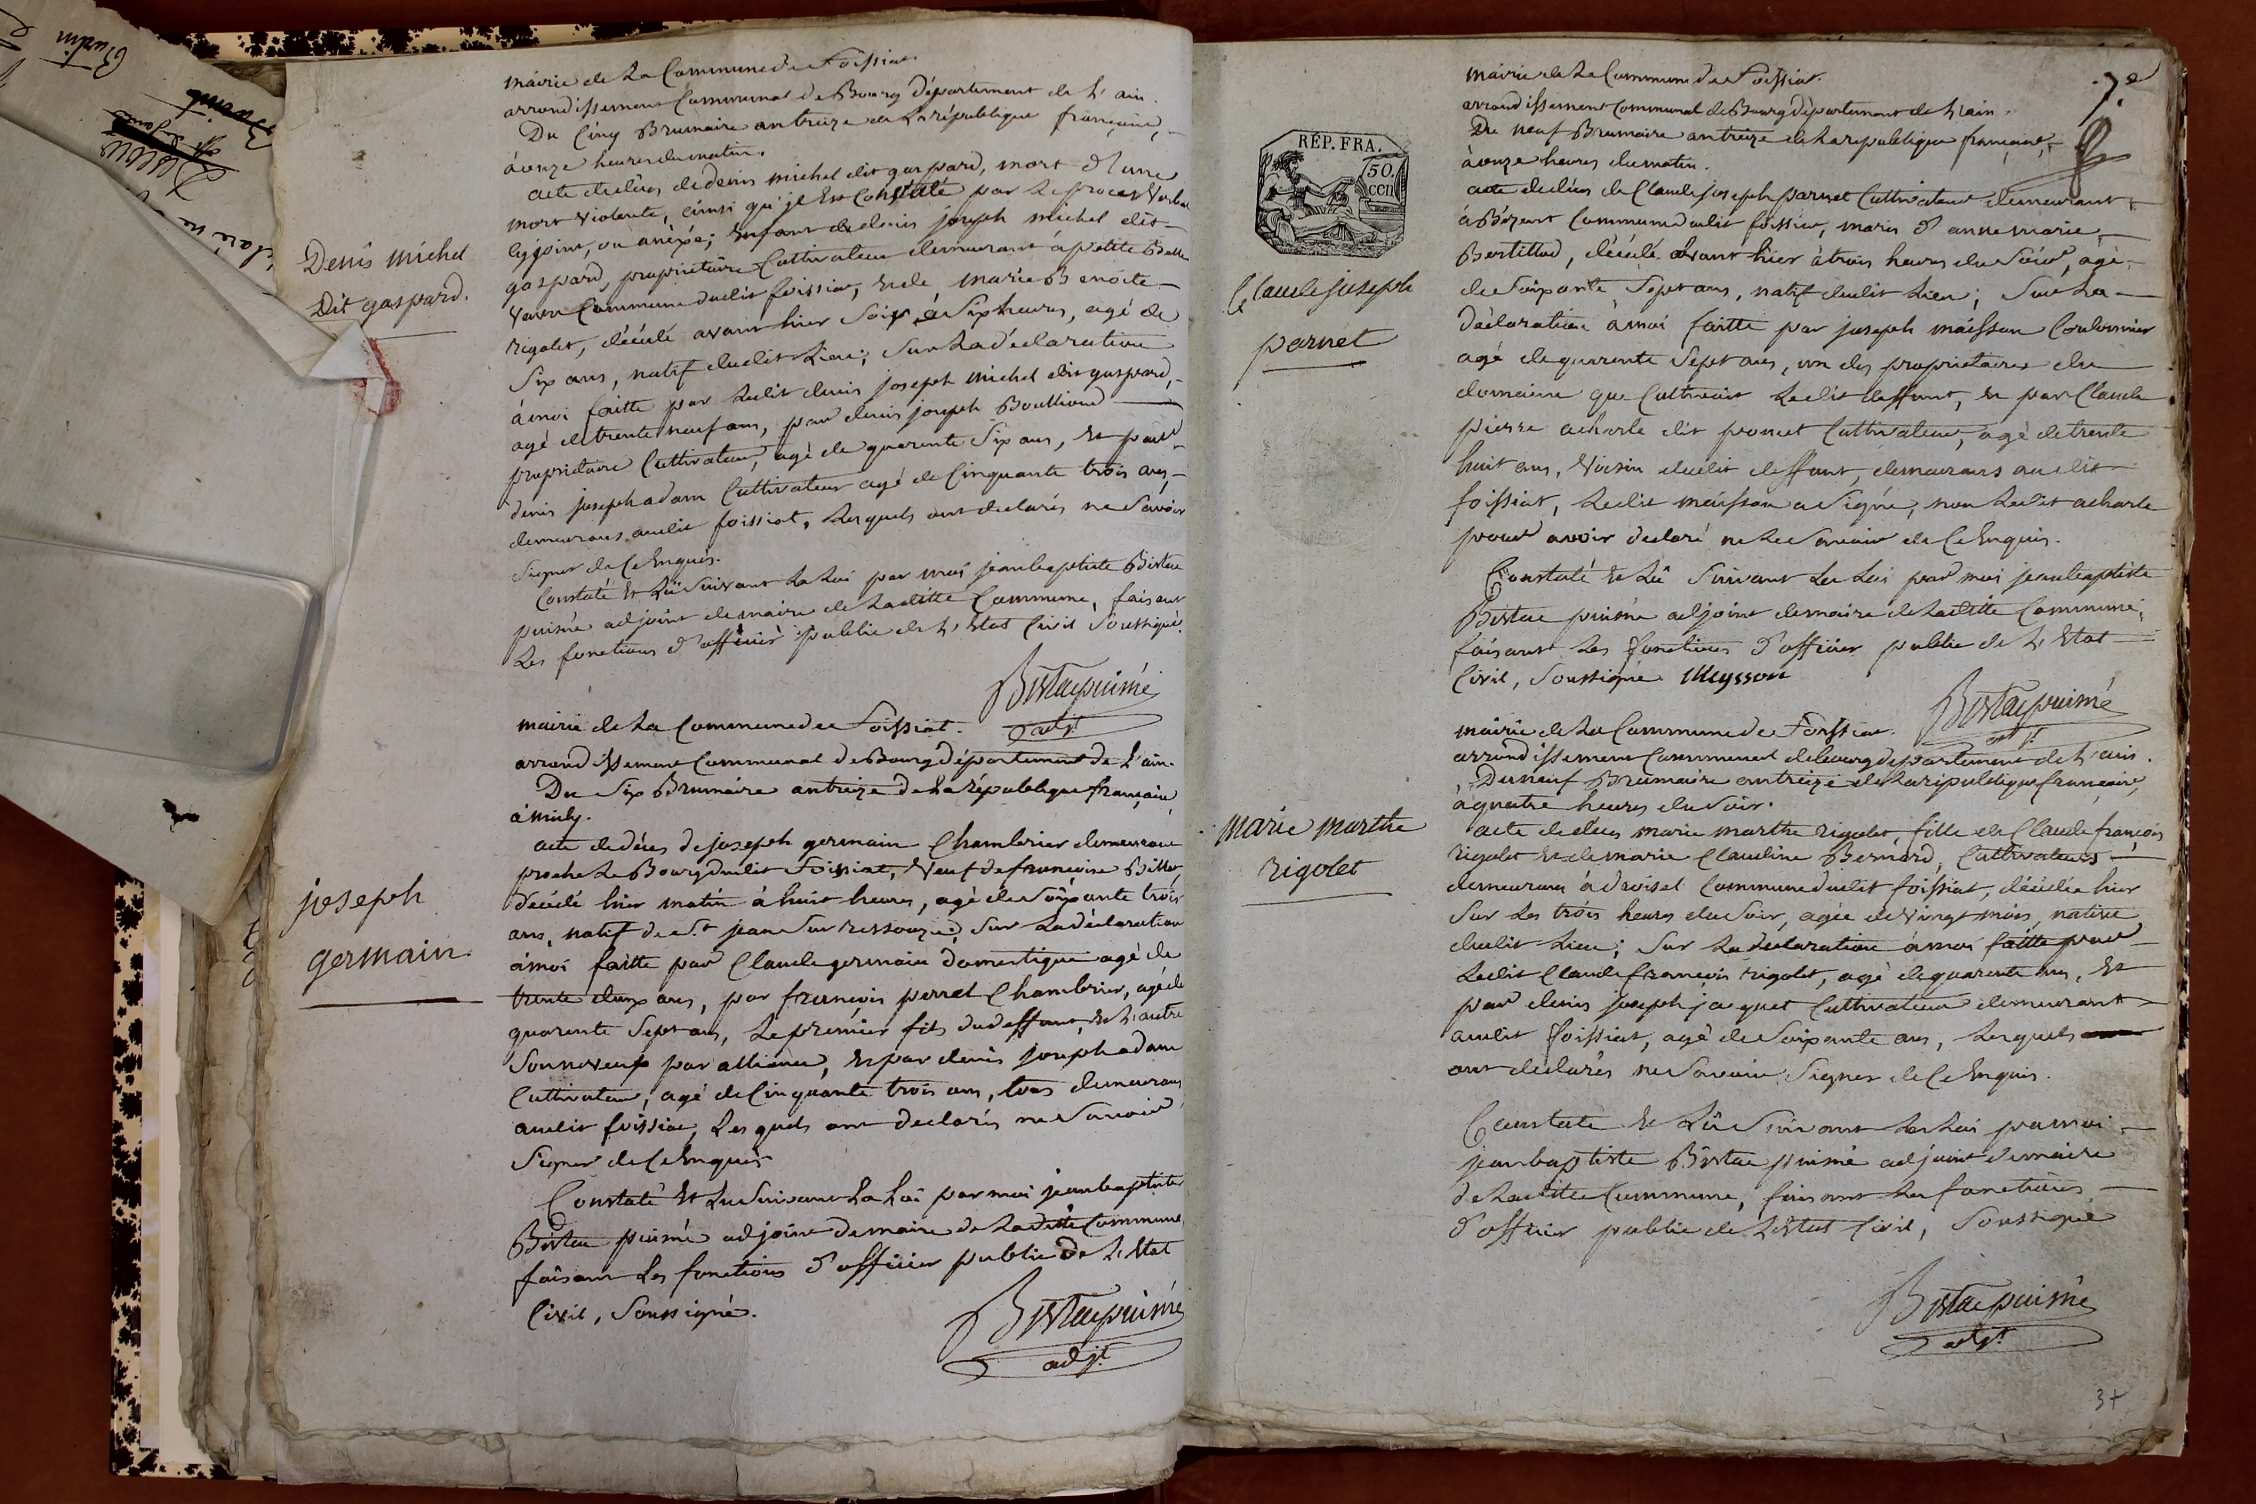 Denis michel
Dit gaspard.
mairie de La Commune de Foissiat
arrondissement Communal de Bourg Département de L'ain.
Du Cinq Brumaire an treize de La république française,
à onze heures du matin.
acte de décès de denis michel dit gaspard, mort d'une
mort violente, ainsi qu'il Est Constaté par Le procès Verbal
cy joint, ou anèxée; Enfant de denis joseph michel dit
gaspard, propriétaire Cultivateur demeurant à petite
Commune dudit foissiat, Et de marie Benoite
rigolet, décédé avant hier Soir, à Six heures, agé de
Six ans, natif dudit Lieu; Sur La déclaration
à moi faitte par Ledit denis joseph michel dit gaspard,
agé de trente neuf ans, par denis joseph Boullioud
propriétaire Cultivateur, agé de quarente Six ans, Et par
denis joseph adam Cultivateur agé de Cinquante trois ans,
demeurans audit foissiat, Lesquels ont declarés ne Savoir
Signer de Ce Enquis.
Constaté Et Lû Suivant La Loi par moi jean baptiste Bistac
puisné adjoint de maire de Laditte Commune, faisant
Les fonctions d'officier public de L'Etat Civil Soussigné.
Bistac puiné
adjt
joseph
germain.
mairie de La Commune de Foissiat.
arrondissement Communal de Bourg département de L'ain.
Du Six Brumaire an treize de La république française,
à midy.
acte de décès de joseph germain Chambrier demeurant
proche Le Bourg dudit Foissiat, Veuf de francoise Billet,
décédé hier matin à huit heures, agé de Soixante trois
ans, natif de St jean Sur ressouze, Sur La déclaration
à moi faitte par Claude germain domestique agé de
trente deux ans, par françois perret Chambrier, agé de
quarente Sept ans, Le premier fils dudeffunt, Et L'autre
Son neveux par alliance, Et par denis joseph adam
Cultivateur, agé de Cinquante trois ans, tous demeurans
audit foissiat, Lesquels ont declarés ne Savoir
Signer de Ce Enquis
Constaté Et Lu Suivant La Loi par moi jean baptiste
Bistac puisné adjoint de maire de Laditte Commune
faisant Les fonctions d'officier public de L'Etat
Civil, Soussigné.
Bistac puiné
adjt
7.e
RÉP. FRA.
50.
CEN
Claude joseph
parnet
mairie de La Commune de Foissiat.
arrondissement Communal de Bourg département de L'ain.
Du neuf Brumaire an treize de La republique française,
à onze heures du matin.
acte de décès de Claude joseph parnet Cultivateur demeurant
à Bézent Commune dudit foissiat, maris d'anne marie
Bertillod, décédé avant hier à trois heures du Soir, agé
de Soixante Sept ans, natif dudit Lieu; Sur La
déclaration à moi faitte par joseph maisson
agé de quarente Sept ans, un des propriétaires du
domaine que Cultivoit Ledit deffunt, Et par Claude
pierre acharle dit poncet Cultivateur, agé de trente
huit ans, Voisin dudit deffunt, demeurans audit
foissiat, Ledit maisson a Signé, non Ledit acharle
pour avoir declaré ne Le Savoir de Ce Enquis.
Constaté Et Lû Suivant La Loi par moi jean baptiste
Bistac puisné adjoint de maire de Laditte Commune,
faisant Les fonctions d'officier public de L'Etat
Civil, Soussigné Meysson
Bistac puiné
adjt
marie marthe
rigolet
mairie de La Commune de Foissiat.
arrondissement Communal de bourg departement de L'ain.
Du neuf Brumaire an treize de La republique française,
à quatre heures du Soir.
acte de décès marie marthe rigolet, fille de Claude françois
rigolet Et de marie Claudine Bernard, Cultivateurs
demeurans à droisel Commune dudit foissiat, décédée hier
Sur Les trois heures du Soir, agée de Vingt mois, native
dudit Lieu; Sur La déclaration à moi faitte par
Ledit Claude françois rigolet, agé de quarente ans, Et
par denis joseph jacquet Cultivateur demeurant
audit foissiat, agé de Soixante ans, Lesquels
ont declarés ne Savoir Signer de Ce Enquis.
Constaté Et Lû Suivant La Loi par moi
jean baptiste Bistac puisné adjoint de maire
de Laditte Commune, faisant Les fonctions
d'officier public de L'Etat Civil, Soussigné
Bistac puiné
adjt
37